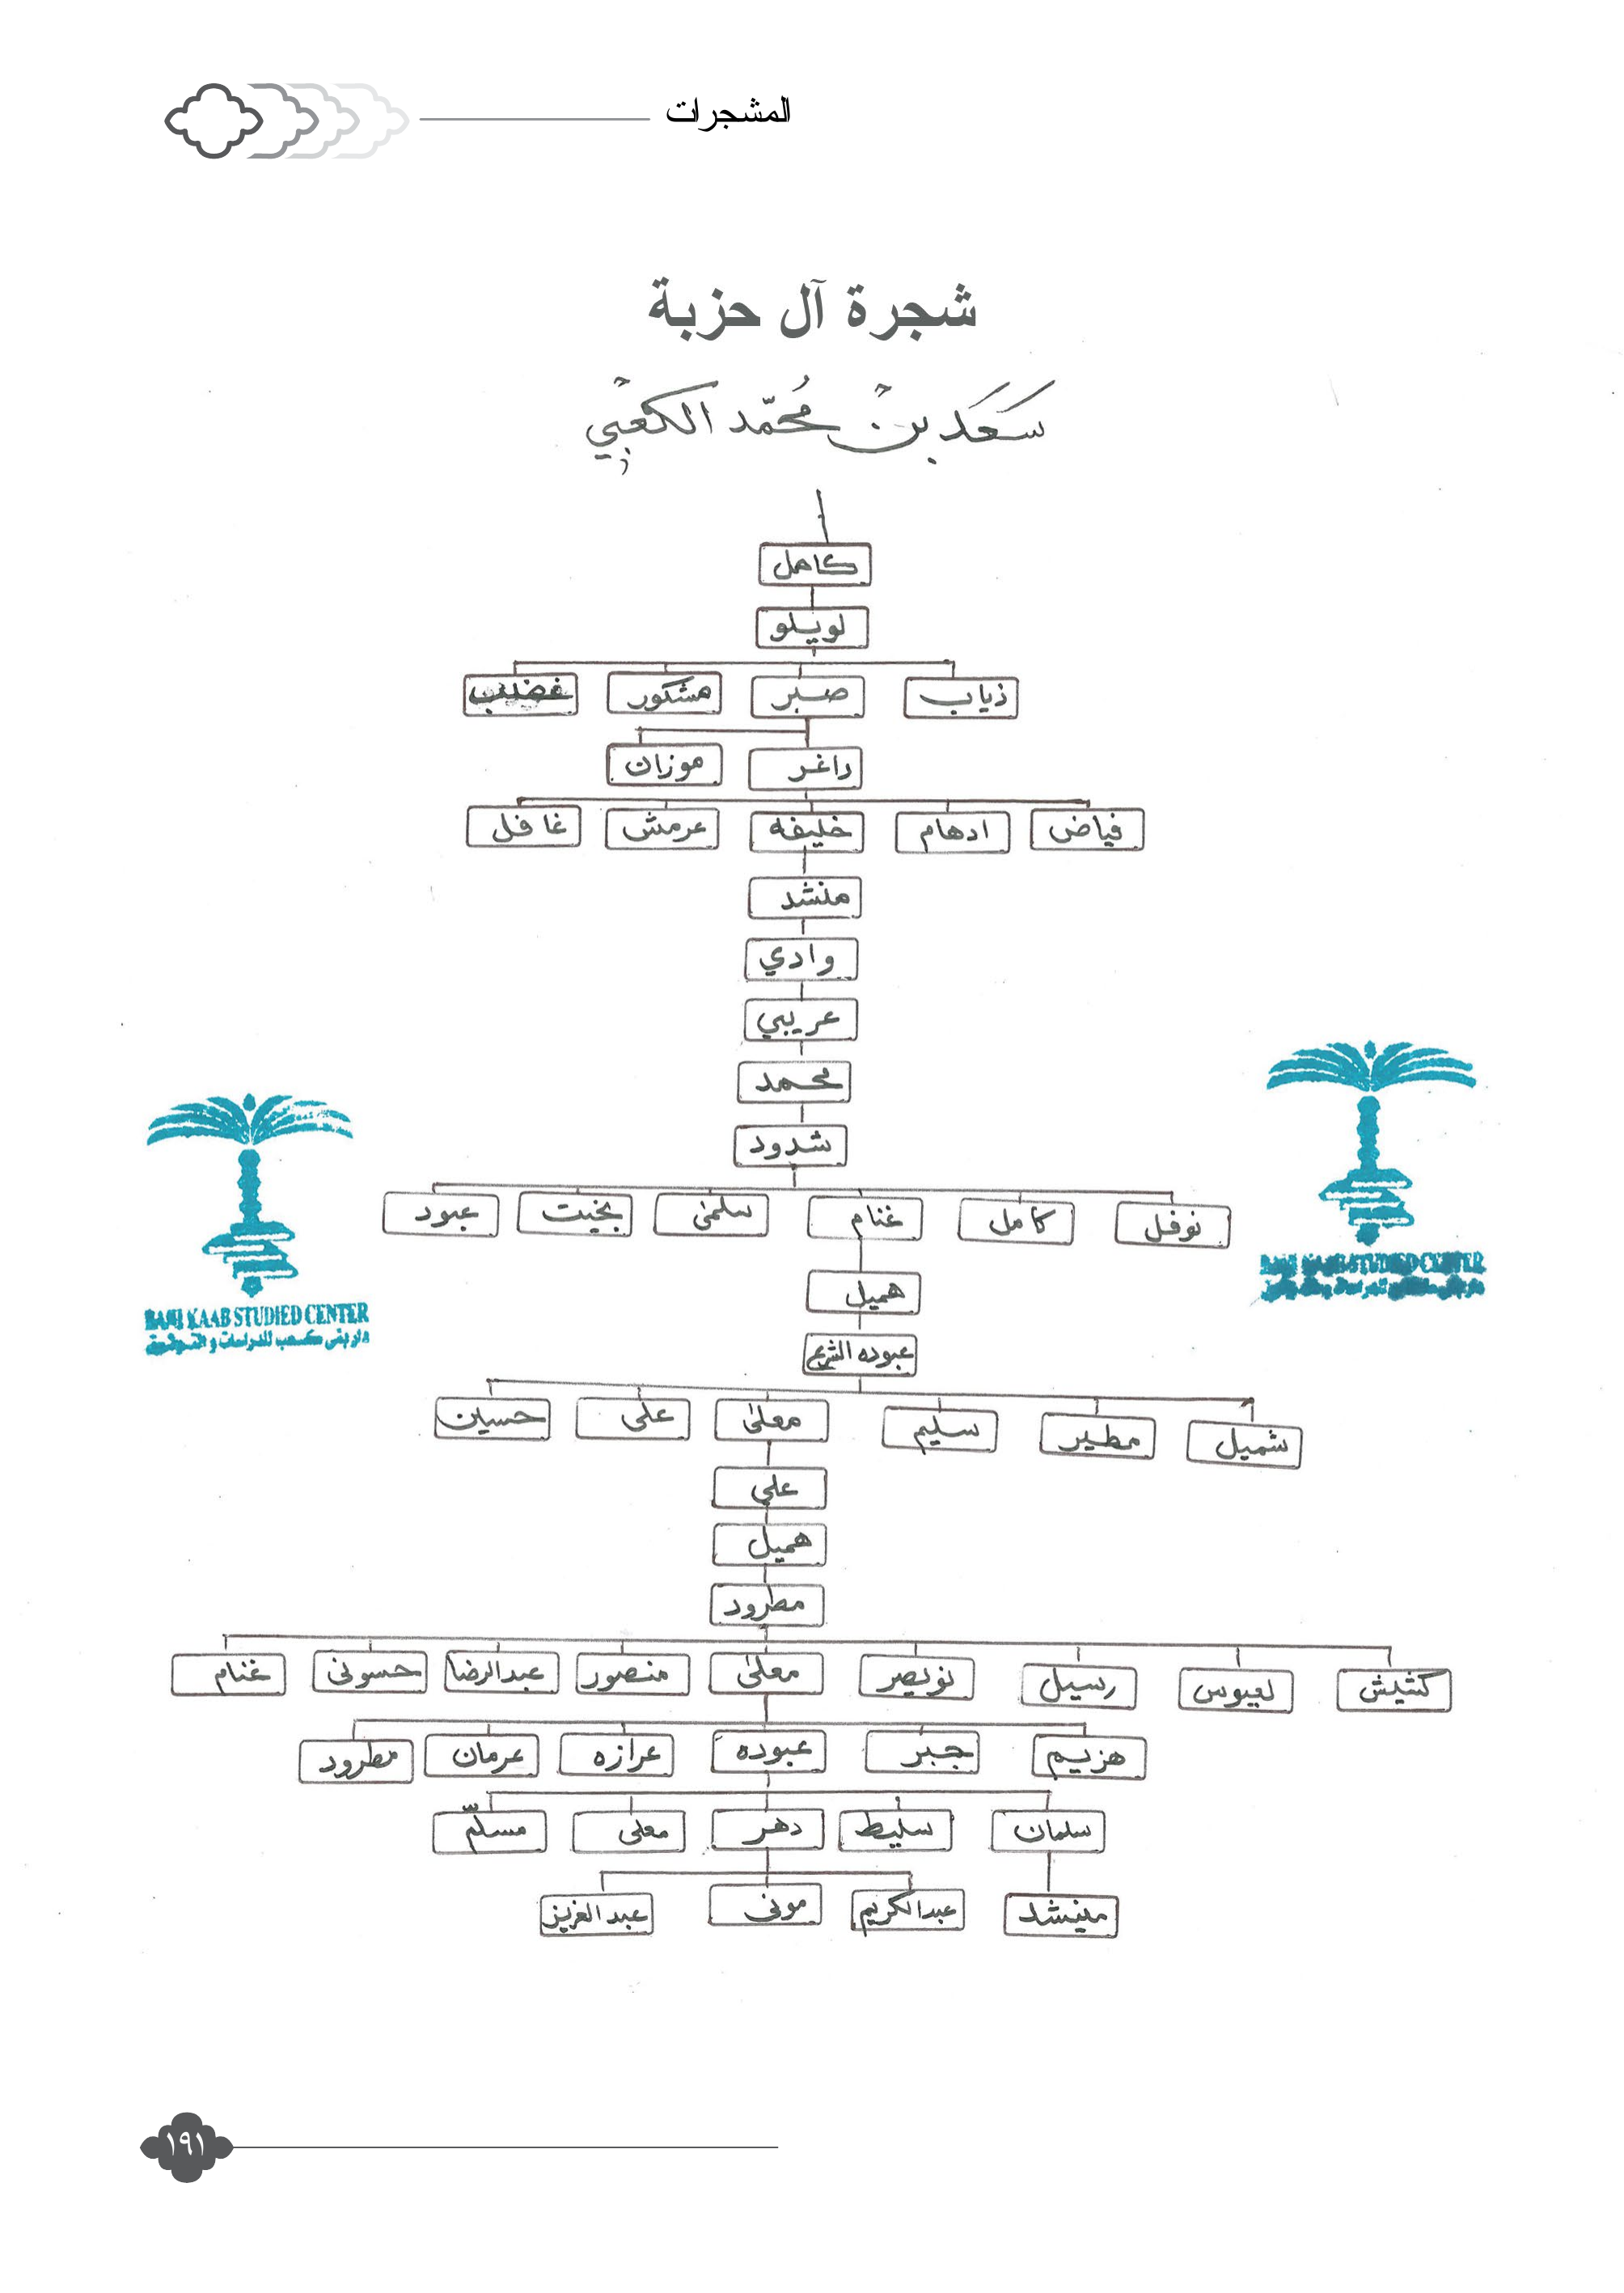 المشجرات
شجرة آل حزبة
سعد بن محمد الكعبي
كامل
لويلو
ذياب صبر مشكور غضيب
داغر موزان
فياض ادهام خليفه عرمش غافل
منشد
وادي
عريبي
محمد
شدود
نوفل كامل غنام سلمى بخيت عبود
هميل
عبوده الشرع
شميل مطير سليم معلى على حسين
علي
هميل
مطرود
كنتيش لعيوس رسيل نويصر معلى منصور عبدالرضا حسونى غنام
هزيم جبر عبوده عرازه عرمان مطرود
سلمان سليط دهر معلى مسلّم
منيشد عبدالكريم مونى عبد العزيز
BANI KAAB STUDIED CENTER
دار بني كعب للدراسات و التوثيق
BANI KAAB STUDIED CENTER
١٩١